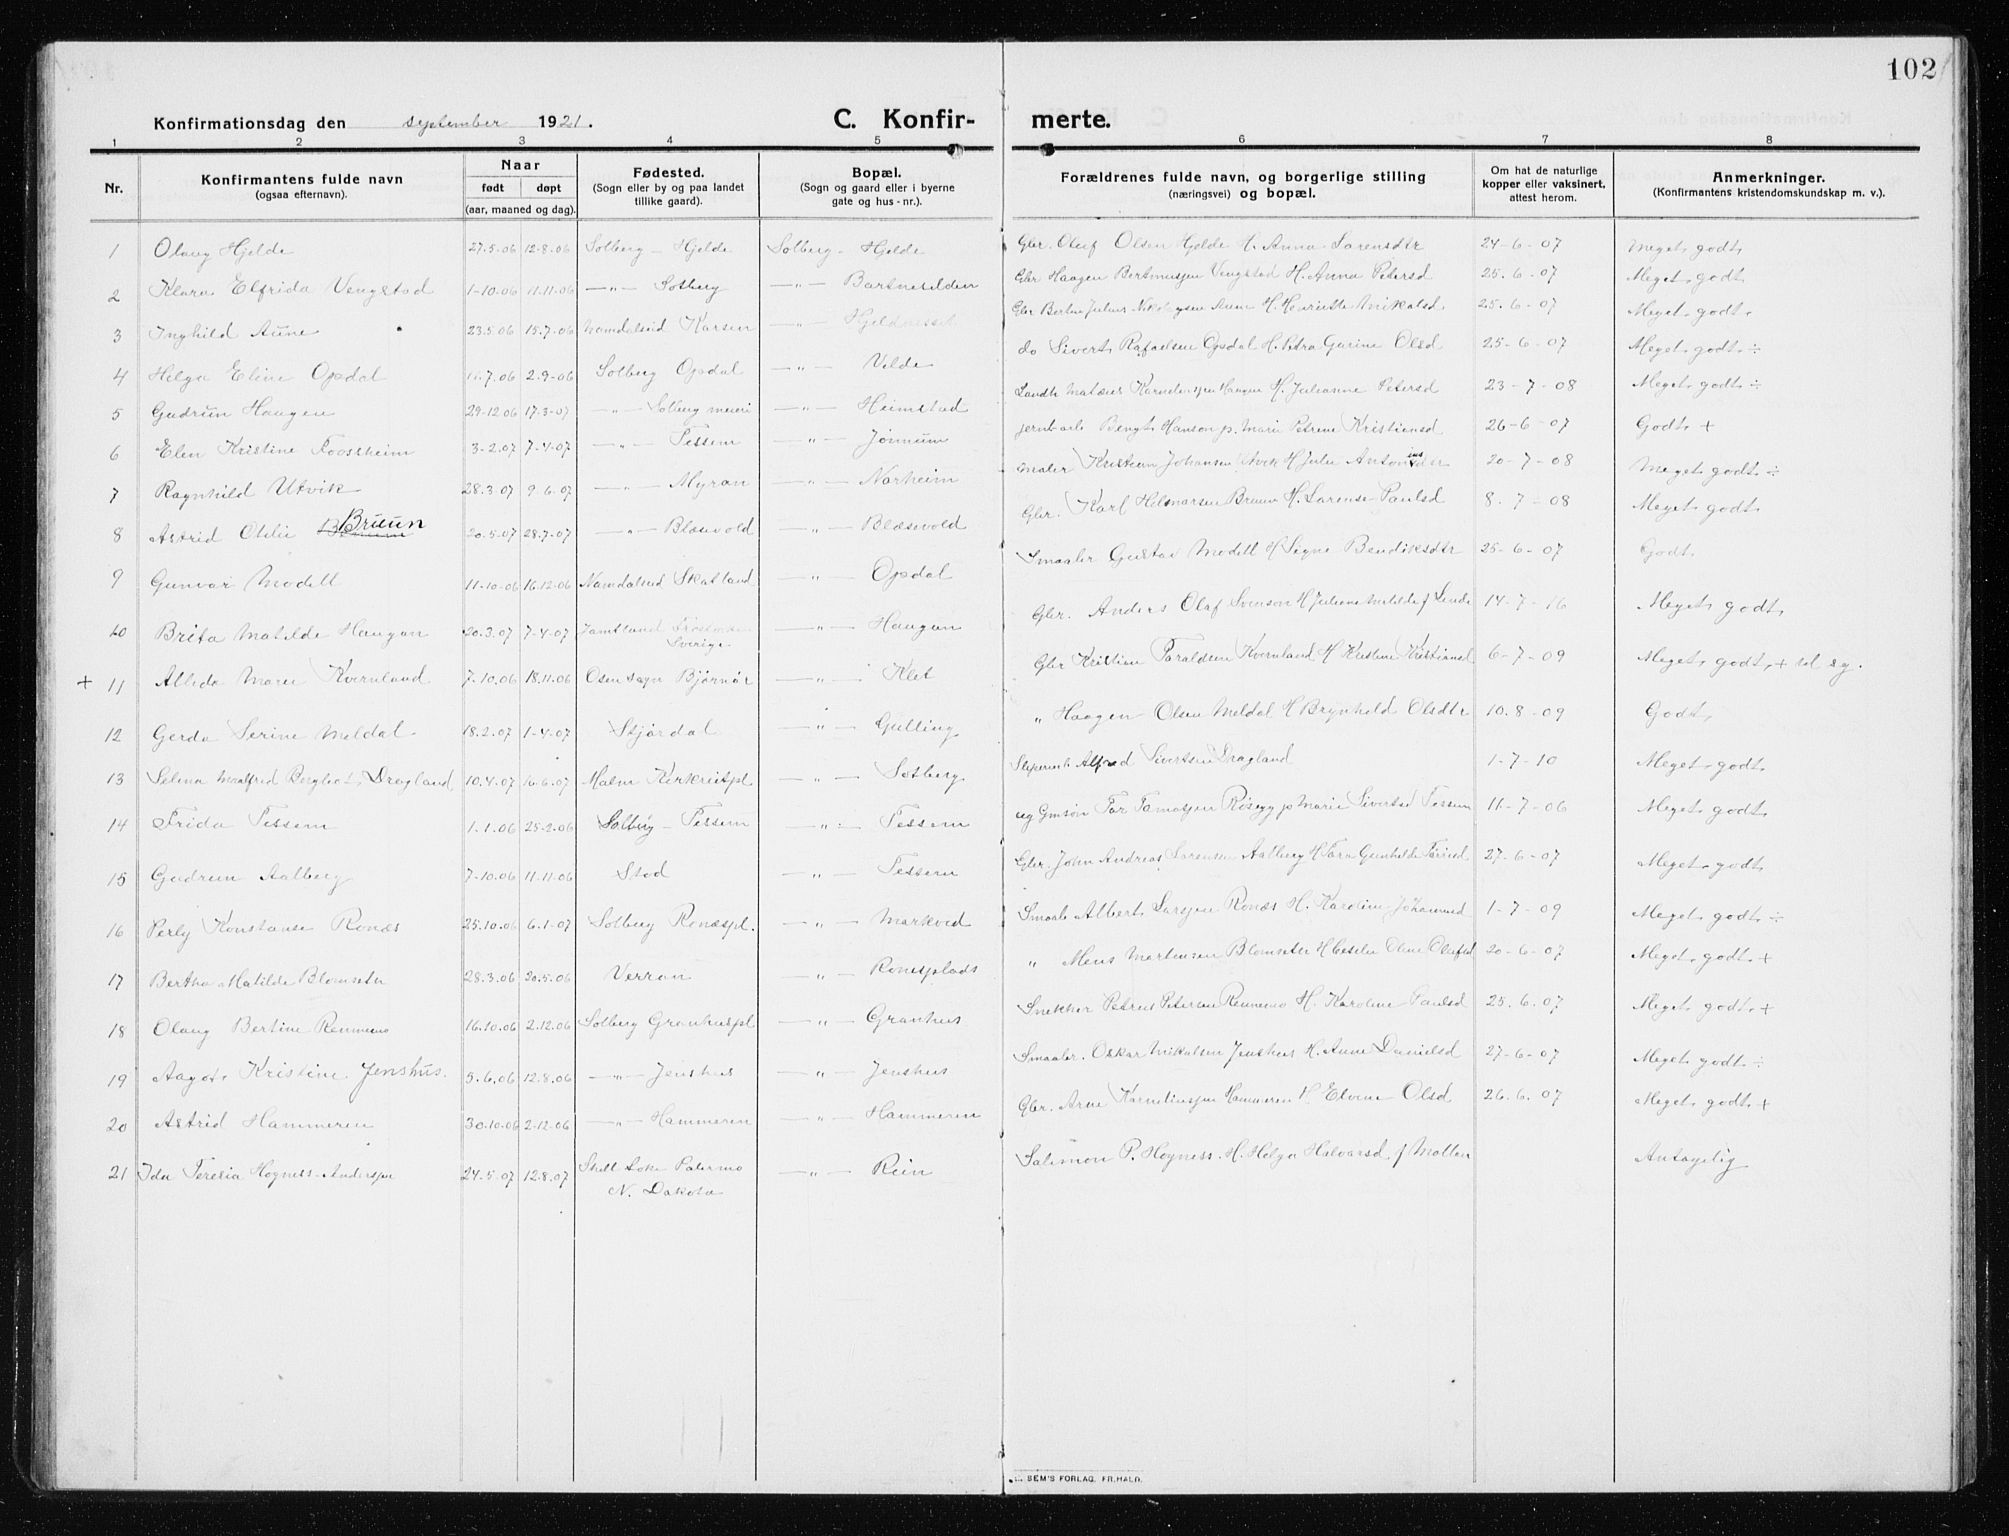 102
Konfirmationsdag den september 1921.
C. Konfir- merte.
1 2 3 4 5 6 7 8
Nr.
Konfirmantens fulde navn (ogsaa efternavn).
Naar født døpt (aar, maaned og dag).
Fødested. (Sogn eller by og paa landet tillike gaard).
Bopæl. (Sogn og gaard eller i byerne gate og hus-nr.).
Forældrenes fulde navn, og borgerlige stilling (næringsvei) og bopæl.
Om hat de naturlige kopper eller vaksinert, attest herom.
Anmerkninger. (Konfirmantens kristendomskundskap m. v.).
1 Olaug Hjelde 27.5.06 12-8.06 Solberg - Hjelde Solberg - Hjelde Gbr. Oluf Olsen Hjelde H. Anna Sørensdtr 24-6-07 Meget godt
2 Klara Elfrida Vengstad 1-10.06 11.11.06 —"— Solberg —"— Gbr Haagen Vengstad H. Anna Petersd 25.6-07 Meget godt
3 Inghild Aune 23.5.06 15.7.06 Namdalseid —"— Gbr Aune H. Henriette Mikalsd 25.6-07 Meget godt
4 Helga Eline Opdal 11.7.06 2.9-06 Solberg Opdal —"— Velde do Sivert Rafaelsen Opdal H. Petra Gurine Olsd 25-6-07 Meget godt ÷
5 Gudrun Haugen 29-12.06 17.3-07 —"— Solberg meieri —"— Heimstad Haugen H. Julianne Petersd 23-7-08 Meget godt ÷
6 Elen Kristine Foosheim 3-2.07 7-4.07 —"— Tessem —"— Jønnum Bengt Hanson p. Marie Petrine Kristiansd 26-6-07 Godt +
7 Ragnhild Utvik 28.3.07 9.6.07 —"— Myran —"— Norheim Maler Kristian Johansen Utvik H Julie 20-7-08 Meget godt ÷
8 Astrid Otilie Bruun 20.5.07 28.7-07 —"— Blæsevold —"— Blæsevold Gbr. Karl Hilmarsen Bruun H. Lorense Paulsd 8.7-08 Meget godt
9 Gunvor Modell 11-10-06 16.12.06 Namdalseid Skatland —"— Opdal Smaabr Gustav Modell H Signe Bendiksdtr 25-6-07 Godt
10 Brita Matilde Haugan 20.3.07 7-4-07 Jämtland Sverige —"— Haugan Gbr. Anders Olaf Svenson H Juliane Matilde f 14-7-16 Meget godt
+ 11 Alida Marie Kvernland 7.10.06 18.11.06 Osen sogn Bjørnør —"— Klet Gbr Kristian Taraldsen Kvernland H Kristine Kristiansd 6-7-09 Meget godt +
12 Gerda Serine Meldal 18.2.07 1-4-07 Stjørdal —"— Gulling " Haagen Olsen Meldal H Brynhild Olsdtr 10.8-09 Godt
13 Selma Maalfrid Bergliot Dragland 10.4.07 16.6.07 Malm —"— Solberg Alfred Sivertsen Dragland 1-7-10 Meget godt
14 Frida Tessem 1.1.06 25-2.06 Solberg - Tessem —"— Tessem ug Gmsøn Tomassen p Marie Sivertsd Tessem 11-7-06 Meget godt
15 Gudrun Aalberg 7-10.06 11.11.06 Stod —"— Tessem Gbr. John Andreas Sørensen Aalberg H 27-6-07 Meget godt
16 Perly Konstanse Ronæs 25.10.06 6.1-07 Solberg Ronæspl. —"— Markved Smaabr Albert Larsen Ronæs H. Karoline 1-7-09 Meget godt ÷
17 Bertha Matilde Blomseth 28.3.06 20.5.06 Verran —"— Ronesplads " Mens Martinsen Blomseth H Cesilie 20-6-07 Meget godt +
18 Olaug Bertine Rennemo 16.10.06 2.12.06 Solberg Granhuspl —"— Granhus Snekker Petrus Petersen Rennemo H. Karoline Paulsd 25.6.07 Meget godt +
19 Aagot Kristine Jenshus. 5.6.06 12.8.06 —"— Jenshus —"— Jenshus Smaabr. Oskar Mikalsen Jenshus H. Anne Danielsd 27-6-07 Meget godt ÷
20 Astrid Hammeren 30.10.06 2-12.06 —"— Hammeren —"— Hammeren Gbr. Arne Korneliussen Hammeren H Elvine Olsd 26.6.07 Meget godt +
21 Ida Teresia Hogness 24.5.07 12.8.07 Palermo N. Dakota —"— Rein Salimon P. Hogness. H. Helga Halvorsd. f Antagelig
SEM'S FORLAG, FR.HALD.